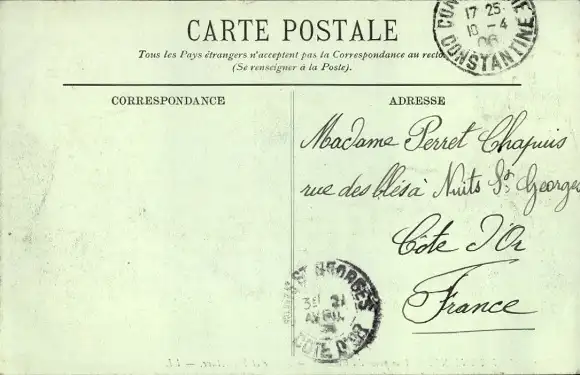 CARTE POSTALE
Tous les Pays étrangers n'acceptent pas la Correspondance au recto
(Se renseigner à la Poste).
CORRESPONDANCE
ADRESSE
Madame Perret Chapuis
rue des blés à Nuits St Georges
Côte d'Or
France
17 25
10 - 4
06
CONSTANTINE
ST GEORGES
COTE D'OR